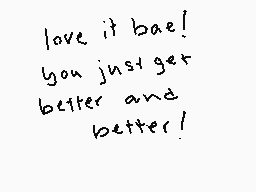 love it bae!
you just get
better and
better!